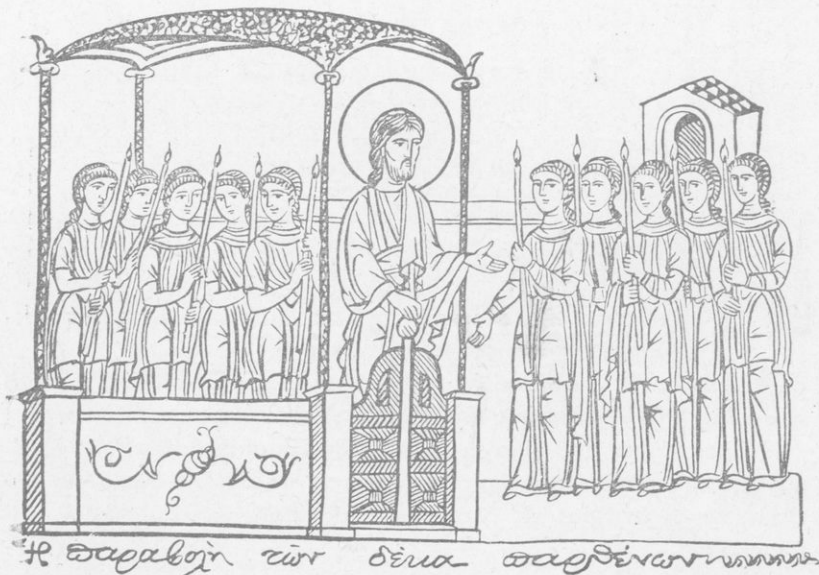 Ἡ παραβολὴ τῶν δέκα παρθένων